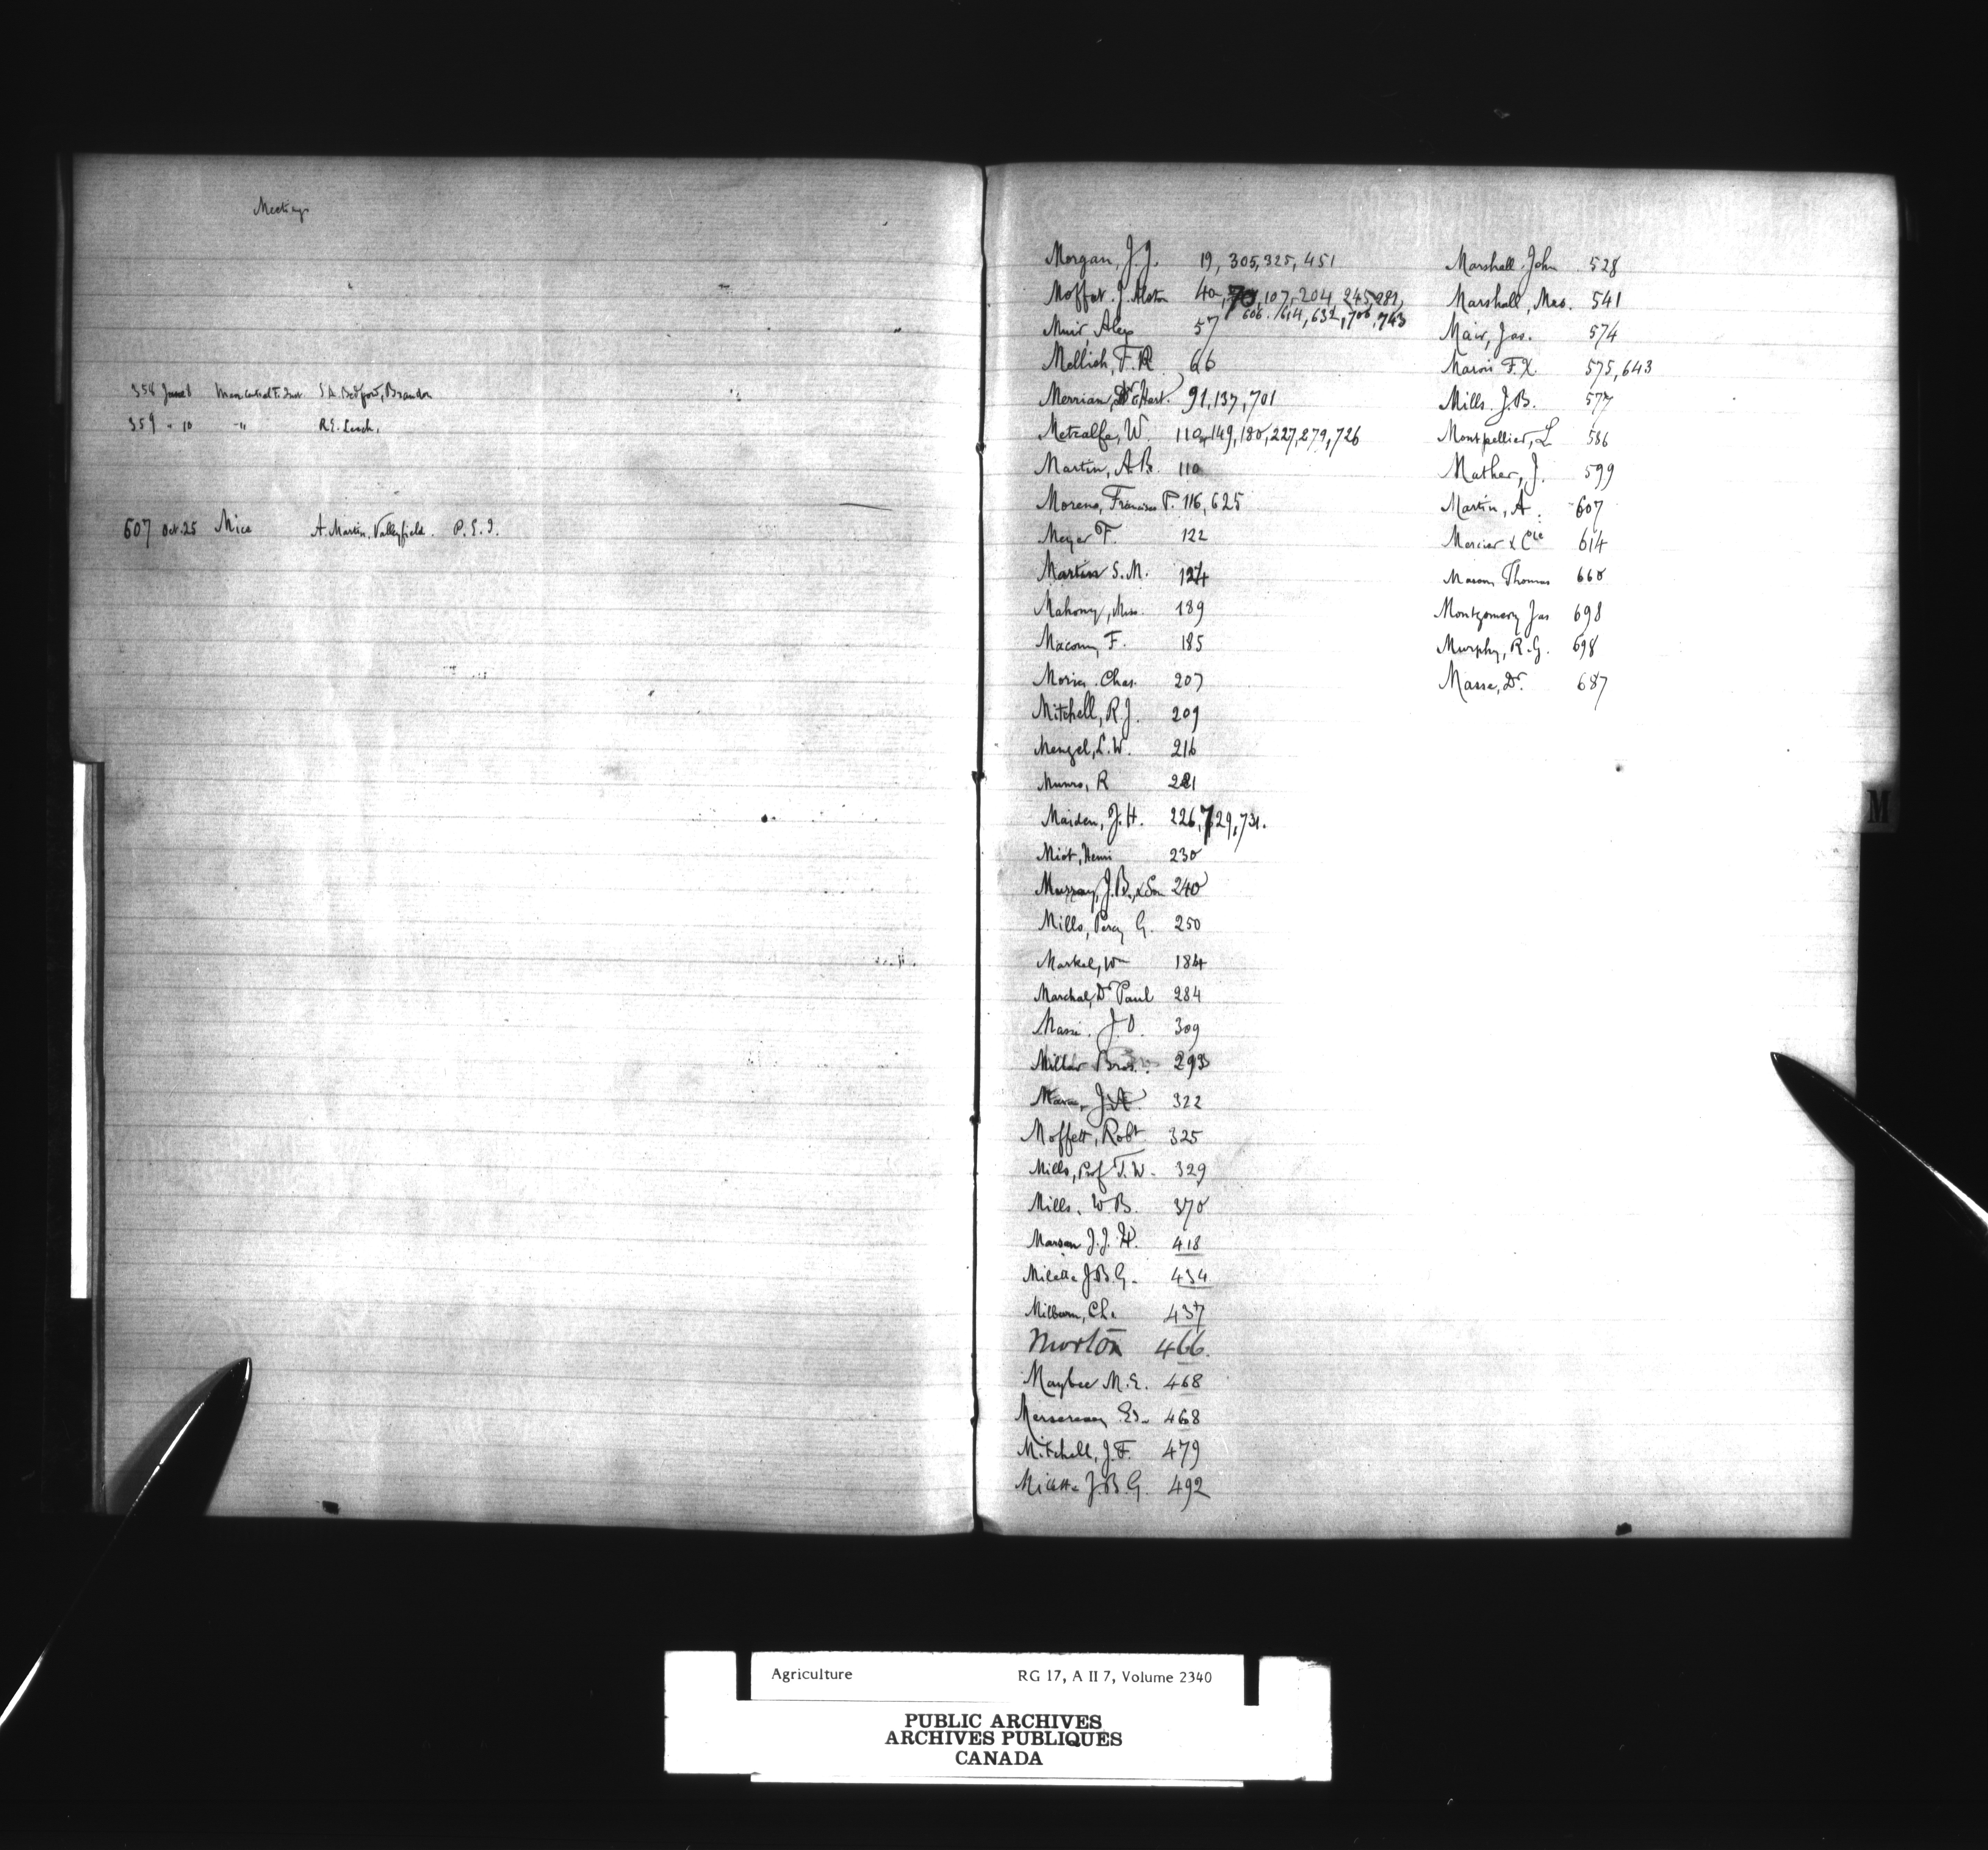 Meetings
358 June 8 S.A. Bedford, Brandon
359 " 10 " R.E. Leach,
607 Oct. 25 Mice A. Martin, Valleyfield. P.E.I.
Morgan, J.J. 19, 305, 325, 451
Moffat. J. Alston 40, 70, 107, 204, 245, 282,
606, 614, 632, 706, 743
Muir, Alex 57
Mellish, F.R. 66
Merriam, Dr C. Hart. 91, 137, 701
Metcalfe, W. 110, 149, 180, 227, 279, 726
Martin, A.B. 110
Moreno, Francisco P. 116, 625
Meyer F. 122
Martin S.M. 124
Mahony, Miss. 189
Macoun, F. 185
Chas. 207
Mitchell, R.J. 209
Mengel, L.W. 216
Munro, R 221
Maiden, J.H. 226, 729, 731.
Miot, Henri 230
Murray, J.B., & Son 240
Mills, Percy G. 250
Markel, Wm 184
Marchal, Dr Paul 284
J.O. 309
Millar Bros. 293
J.A. 322
Moffett, Robt 325
Mills, Prof T.W. 329
Mills. W.B. 370
Marsan J.J.H. 418
Milette J.B.G. 434
Milburn, Ch. 437
Morton 466.
Maybee M.E. 468
Mersereau 468
Mitchell, J.F. 479
Milette J.B.G. 492
Marshall. John 528
Marshall, Mrs. 541
Mair, Jas. 574
F.X. 575, 643
Mills. J.B. 577
Montpellier, L 586
Mather, J. 599
Martin, A. 607
Mercier & Cie 614
Mason, Thomas 660
Montgomery Jas 698
Murphy, R.G. 698
Masse, Dr. 687
M
Agriculture RG 17, A II 7, Volume 2340
PUBLIC ARCHIVES
ARCHIVES PUBLIQUES
CANADA